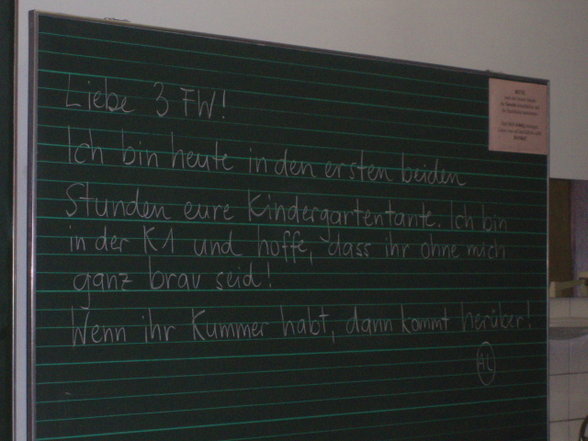 Liebe 3 FW!
Ich bin heute in den ersten beiden
Stunden eure Kindergartentante. Ich bin
in der K1 und hoffe, dass ihr ohne mich
ganz brav seid!
Wenn ihr Kummer habt, dann kommt herüber!
AL